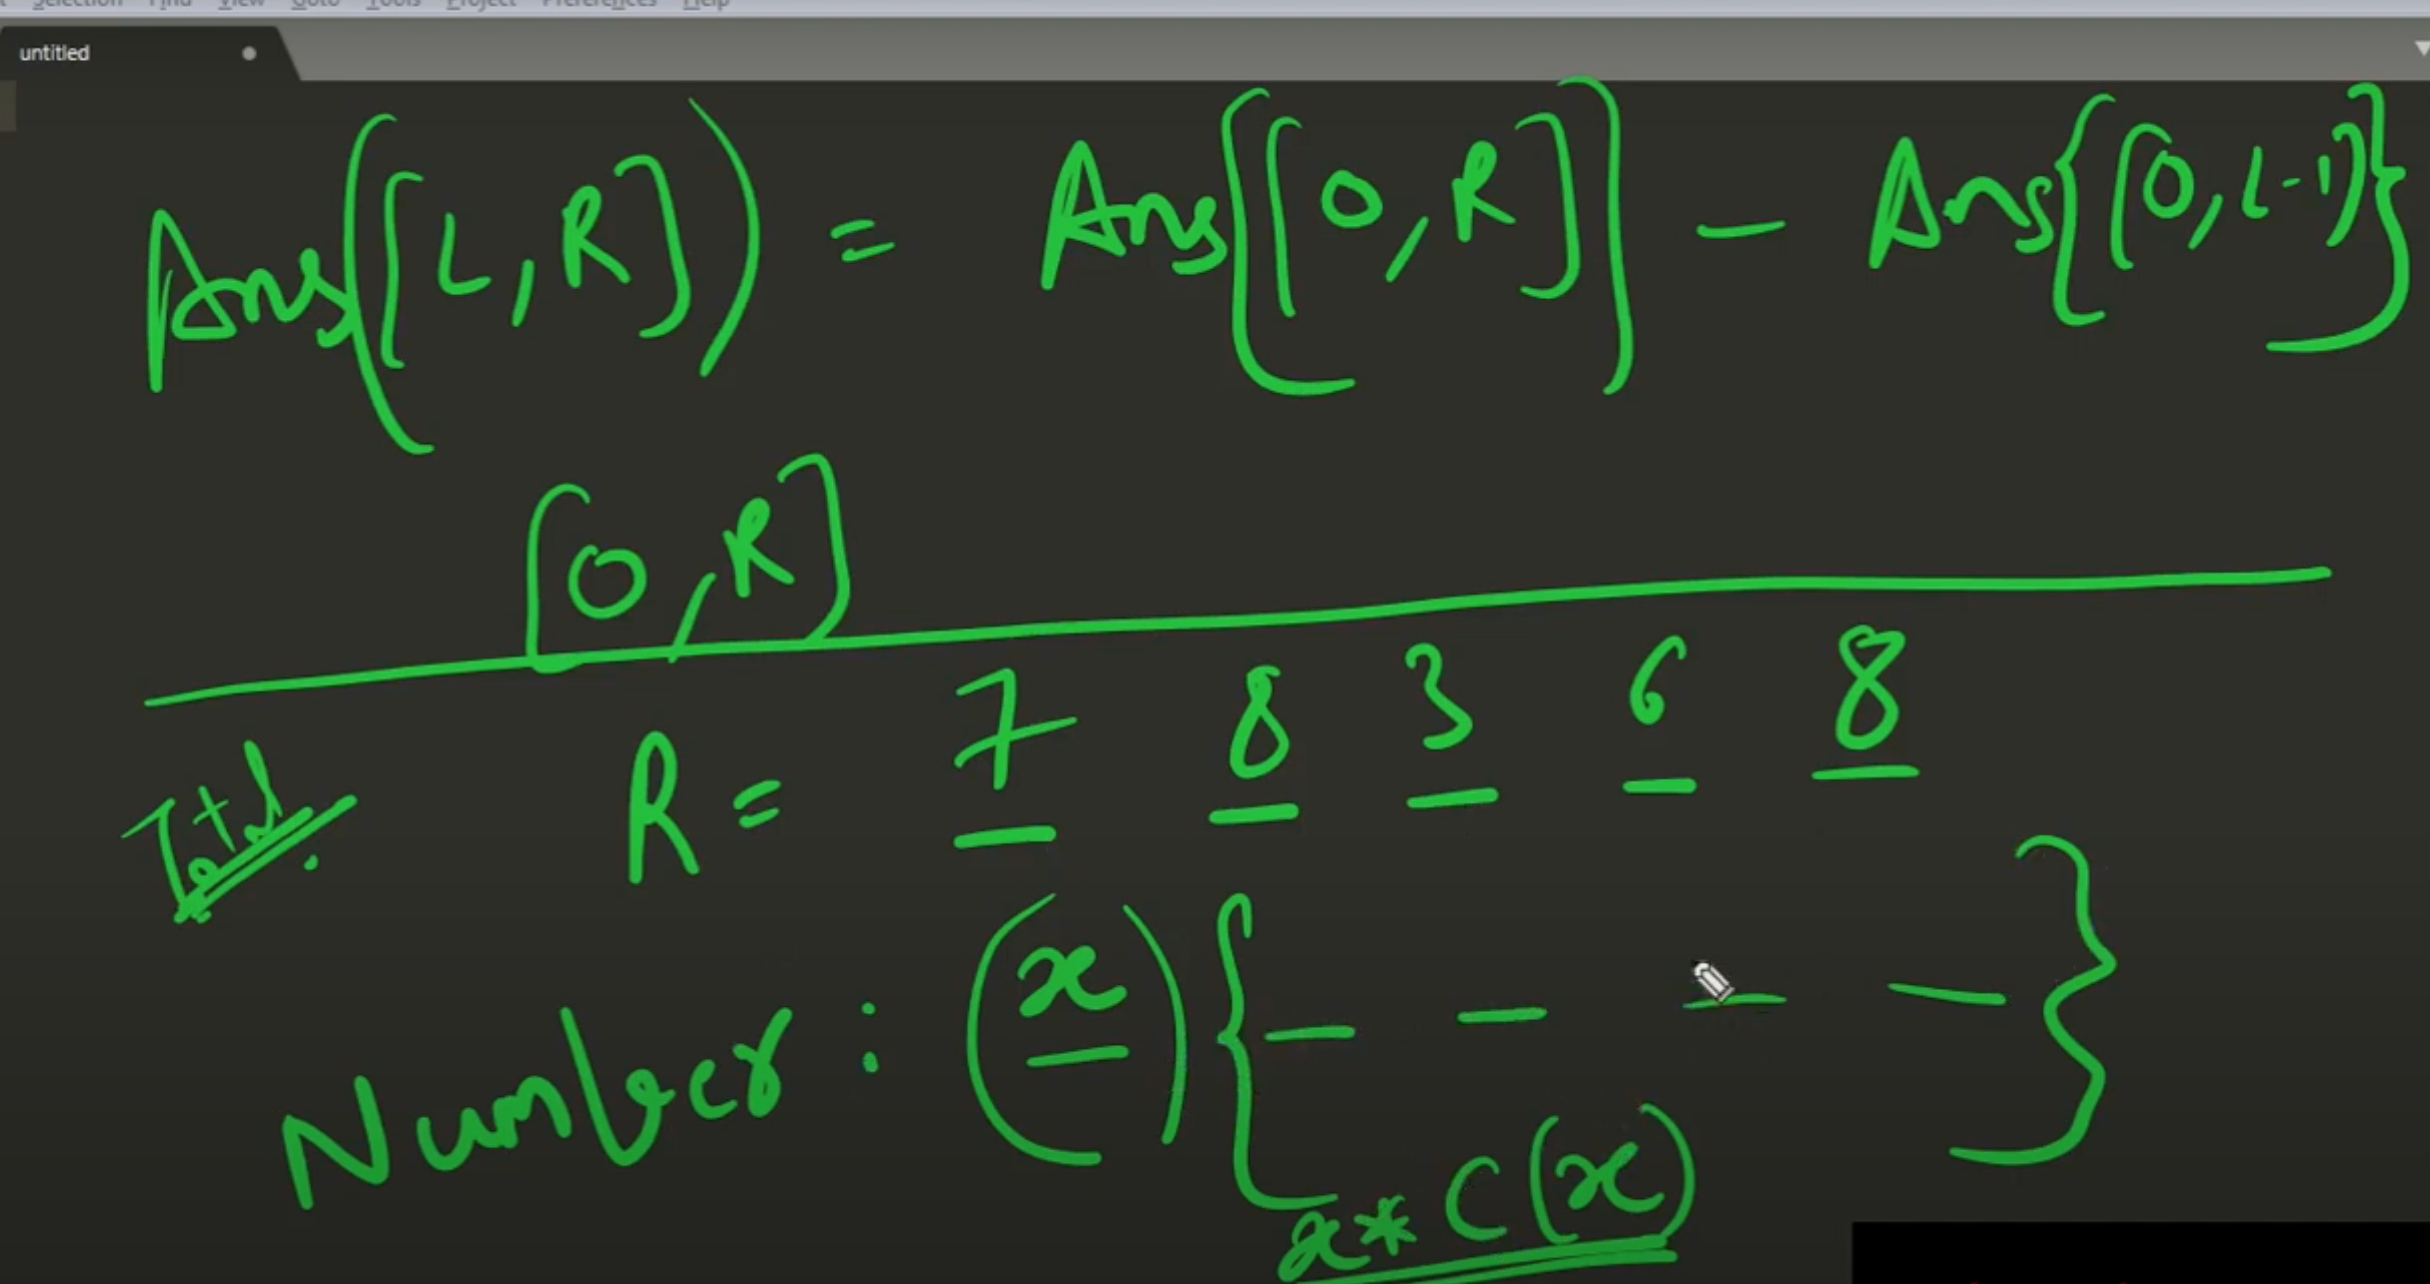 Selection Find View Goto Tools Project Preferences Help
untitled
Ans([L,R]) = Ans{[0,R]} - Ans{[0,L-1]}
[0,R]
Total
R = 7 8 3 6 8
Number : (x) { _ _ _ _ }
x * C(x)